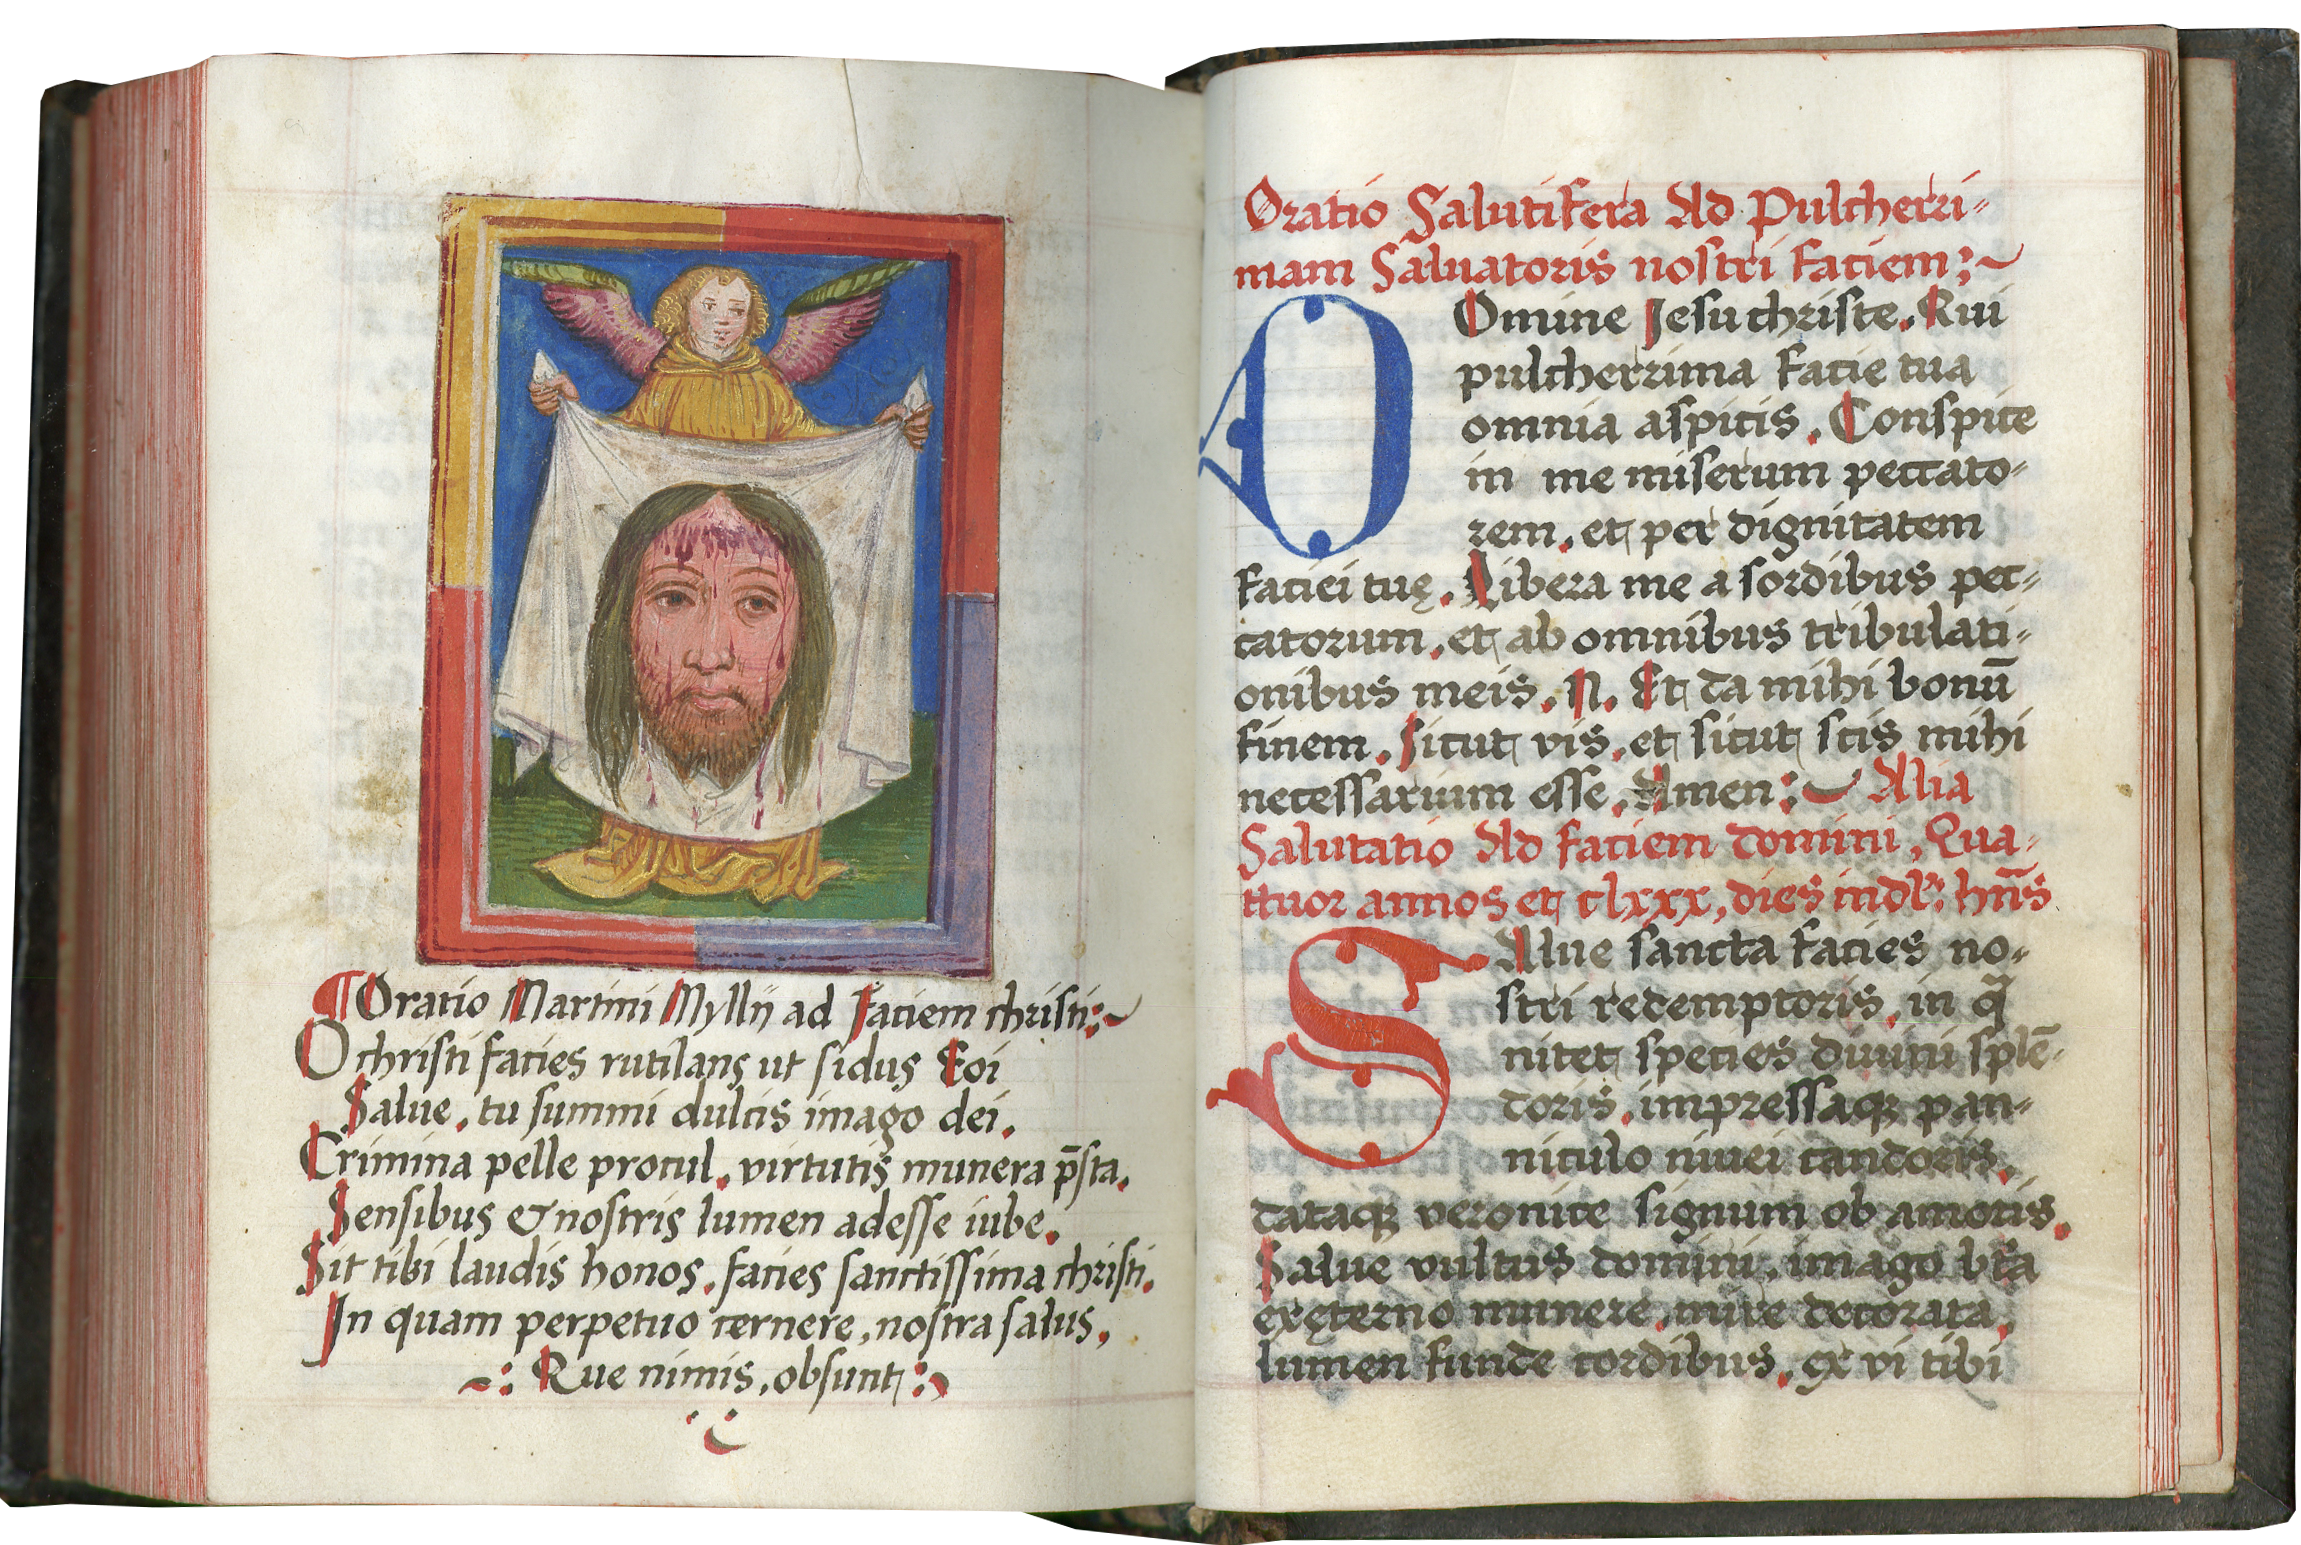 ¶ Oratio Martini Mylli ad Faciem christi:~
O christi facies rutilans ut sidus Eoi
Salue, tu summi dulcis imago dei.
Crimina pelle procul, virtutis munera p̄sta.
Sensibus & nostris lumen adesse iube.
Sit tibi laudis honos, facies sanctissima christi.
In quam perpetuo cernere, nostra salus,
~: Que nimis, obsunt :~
Oratio Salutifera Ad Pulcherri=
mam Saluatoris nostri faciem:~
DOmine Jesu christe. Qui
pulcherrima facie tua
omnia aspicis. Conspice
in me miserum peccato=
rem, et per dignitatem
faciei tuę. Libera me a sordibus pec=
catorum, et ab omnibus tribulati=
onibus meis. N. Et da mihi bonū
finem. Sicut vis, et sicut scis mihi
necessarium esse. Amen:~ Alia
Salutatio Ad faciem domini, Qua=
ttuor annos et clxxx, dies indl: hn̄s
SAlue sancta facies no=
stri redemptoris, in q̄
nitet species diuini splē=
doris, impressaq; pan=
niculo niuei candoris,
dataq; veronice signum ob amoris.
Salue vultus domini, imago bt̄a
ex ęterno munere, mire decorata,
lumen funde cordibus, ex vi tibi